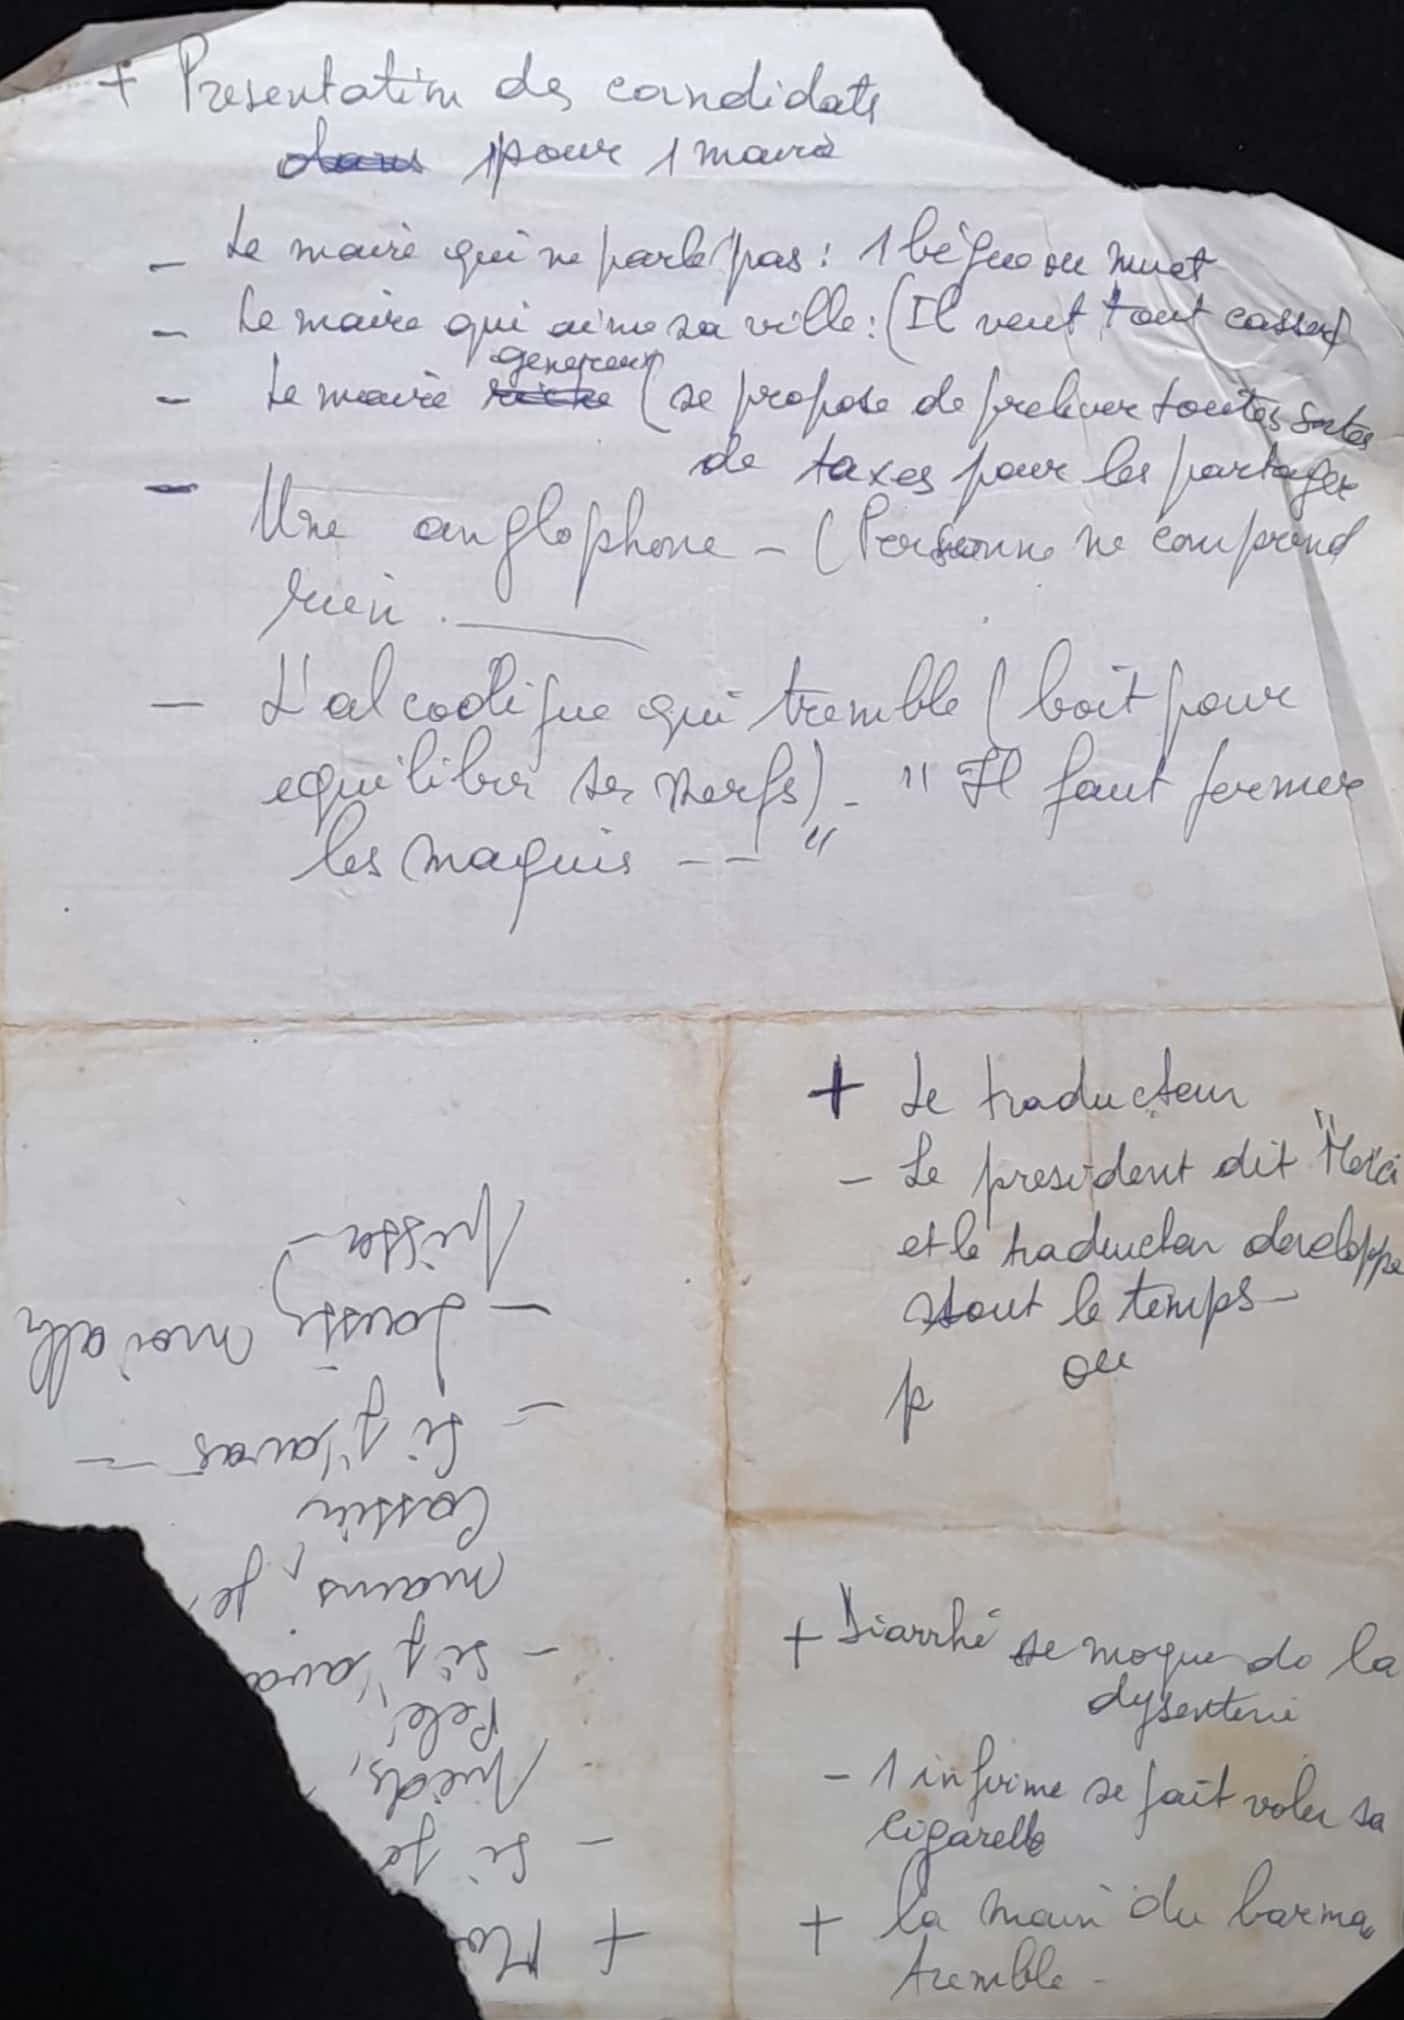 + Presentation des candidats
dans pour 1 mairie
- Le maire qui ne parle pas : 1 bégue ou muet
- Le maire qui aime sa ville : (Il veut tout casser)
genereux
- Le maire riche (se propose de prelever toutes sortes
de taxes pour les partager
- Une anglophone - (Personne ne comprend
rien.
- L'alcoolique qui tremble (boit pour
equilibrer ses nerfs) - "Il faut fermer
les maquis -- "
+ Le traducteur
- Le president dit "Merci
et le traducteur developpe
tout le temps -
p ou
+ Diarrhé se moque de la
dysenterie
- 1 infirme se fait voler sa
cigarette
+ la main du barma
tremble -
+ Mo
- Si je
pieds,
Pelé
- Si j'ava
mains, je
Cassin
- Si j'avas --
- Laisse moi
pisser -